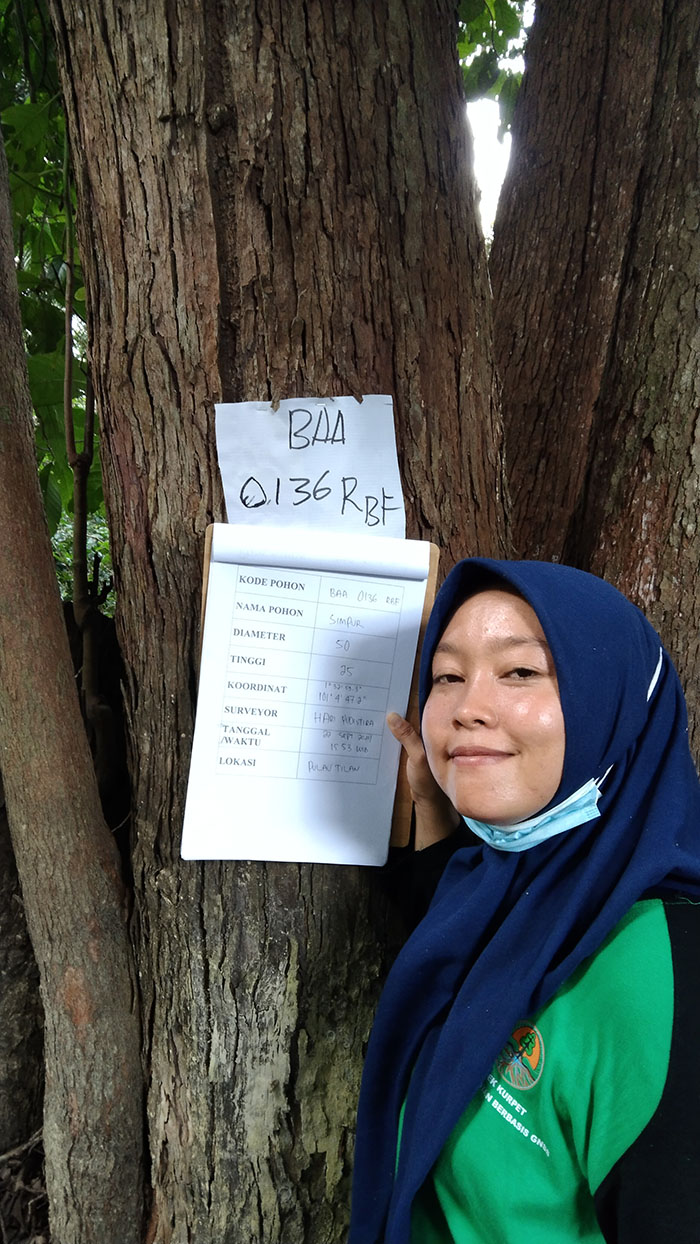 BAA
0136 RBF
KODE POHON BAA 0136 RBF
NAMA POHON SIMPUR
DIAMETER 50
TINGGI 25
KOORDINAT
101° 4' 47.2"
SURVEYOR HARI
TANGGAL 20 Sept
/WAKTU 15.53 WIB
LOKASI PULAU TILAN
KURPET
BERBASIS